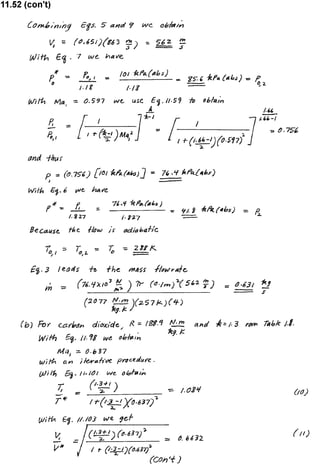 11.52 (con't)
Combining Eqs. 5 and 9 we obtain
V₁ = (0.651)(863 m/s) = 562 m/s
With Eq. 7 we have
p₀* = p₀,₁/1.18 = 101 kPa(abs)/1.18 = 85.6 kPa(abs) = p₀,₂
With Ma₁ = 0.597 we use Eq. 11.59 to obtain
p₁/p₀,₁ = [1/(1+(k-1/2)Ma₁²)]^(k/k-1) = [1/(1+(1.66-1/2)(0.597)²)]^(1.66/1.66-1) = 0.756
and thus
p₁ = (0.756)[101 kPa(abs)] = 76.4 kPa(abs)
With Eq. 6 we have
p* = p₁/1.827 = 76.4 kPa(abs)/1.827 = 41.8 kPa(abs) = p₂
Because the flow is adiabatic
T₀,₁ = T₀,₂ = T₀ = 288 K
Eq. 3 leads to the mass flowrate
ṁ = (76.4×10³ N/m²) π (0.1m)² (562 m/s) / (2077 N.m/kg.K)(257K)(4) = 0.631 kg/s
(b) For carbon dioxide, R = 188.9 N.m/kg.K and k = 1.3 from Table 1.8.
With Eq. 11.98 we obtain
Ma₁ = 0.637
with an iterative procedure.
With Eq. 11.101 we obtain
T₁/T* = (1.3+1/2) / 1+(1.3-1/2)(0.637)² = 1.084 (10)
With Eq. 11.103 we get
V₁/V* = √[(1.3+1/2)(0.637)² / 1+(1.3-1/2)(0.637)²] = 0.6632 (11)
(con't)